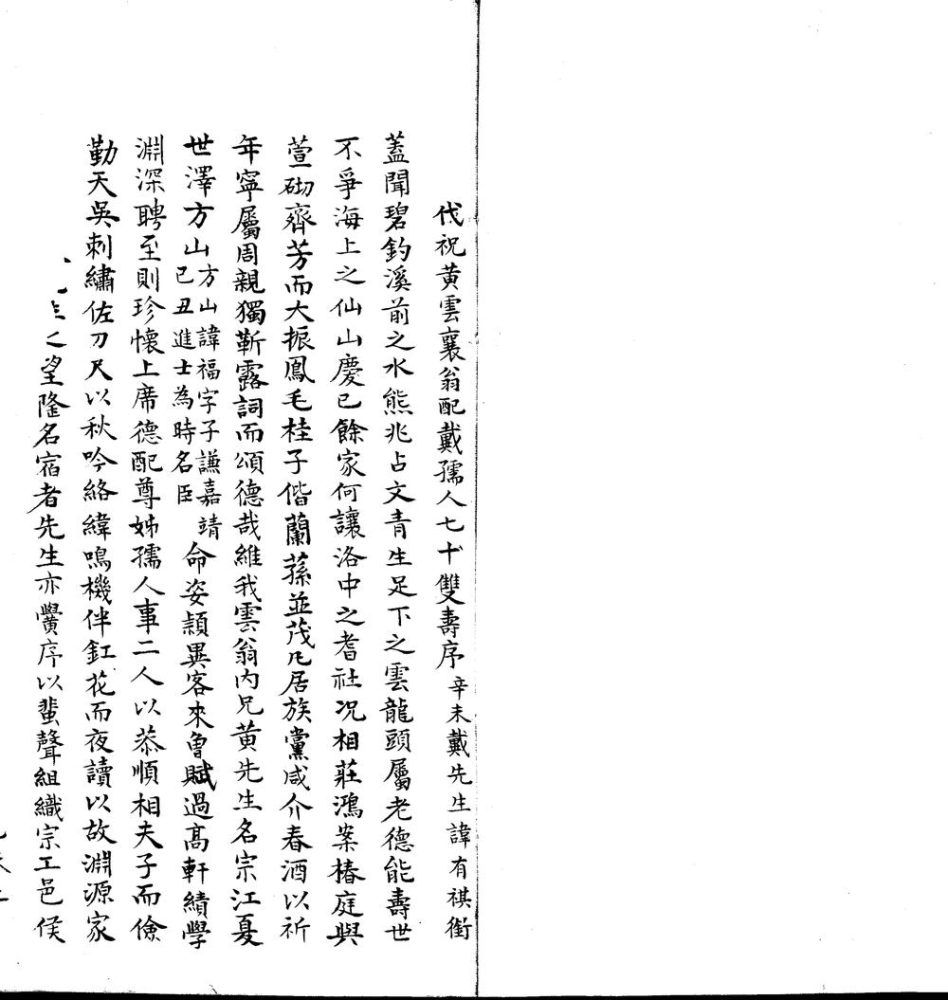 代祝黃雲襄翁配戴孺人七十雙壽序 辛未戴先生諱有祺銜
蓋聞碧釣溪前之水熊兆占文青生足下之雲龍頭屬老德能壽世
不爭海上之仙山慶已餘家何讓洛中之耆社况相莊鴻案椿庭與
萱砌齊芳而大振鳳毛桂子偕蘭蓀並茂凡居族黨咸介春酒以祈
年寧屬周親獨靳露詞而頌德哉維我雲翁内兄黃先生名宗江夏
世澤方山 方山諱福字子謙嘉靖
已丑進士為時名臣 命姿穎異客來魯賦過高軒績學
淵深聘至則珍懷上席德配尊姊孺人事二人以恭順相夫子而儉
勤天吳刺繡佐刀尺以秋吟絡緯鳴機伴釭花而夜讀以故淵源家
之望隆名宿者先生亦黌序以蜚聲組織宗工邑侯